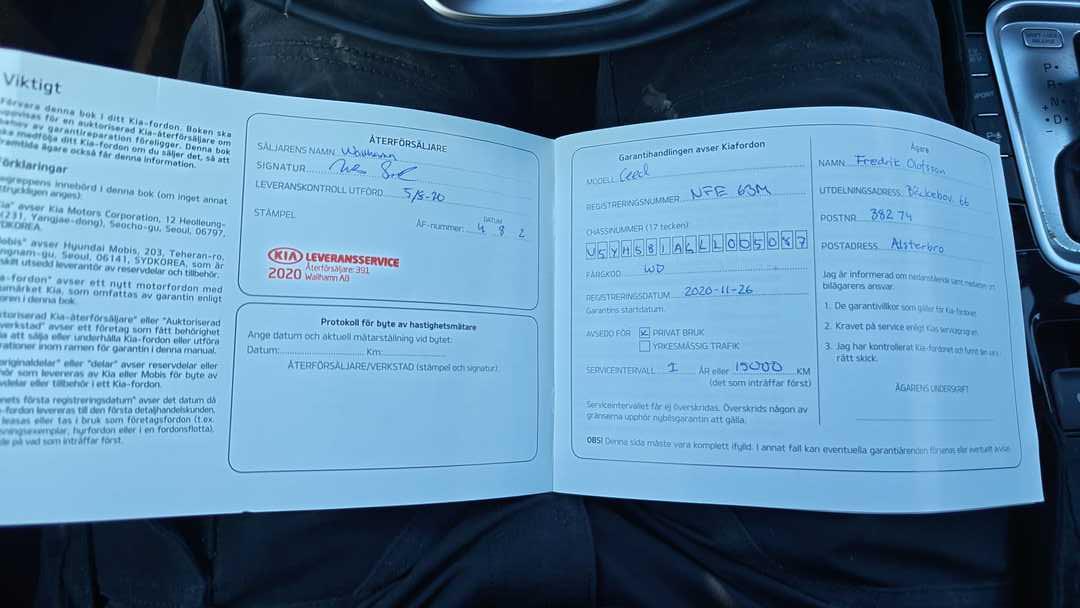 Viktigt
Förvara denna bok i ditt Kia-fordon. Boken ska
uppvisas för en auktoriserad Kia-återförsäljare om
behov av garantireparation föreligger. Denna bok
ska medfölja ditt Kia-fordon om du säljer det, så att
framtida ägare också får denna information.
Förklaringar
begreppens innebörd i denna bok (om inget annat
uttryckligen anges):
Kia" avser Kia Motors Corporation, 12 Heolleung-
(231, Yangjae-dong), Seocho-gu, Seoul, 06797,
SYDKOREA.
Mobis" avser Hyundai Mobis, 203, Teheran-ro,
Gangnam-gu, Seoul, 06141, SYDKOREA, som är
utsedd leverantör av reservdelar och tillbehör.
Kia-fordon" avser ett nytt motorfordon med
varumärket Kia, som omfattas av garantin enligt
i denna bok.
"Auktoriserad Kia-återförsäljare" eller "Auktoriserad
verkstad" avser ett företag som fått behörighet
att sälja eller underhålla Kia-fordon eller utföra
reparationer inom ramen för garantin i denna manual.
"Originaldelar" eller "delar" avser reservdelar eller
tillbehör som levereras av Kia eller Mobis för byte av
delar eller tillbehör i ett Kia-fordon.
första registreringsdatum" avser det datum då
Kia-fordon levereras till den första detaljhandelskunden,
leasas eller tas i bruk som företagsfordon (t.ex.
visningsexemplar, hyrfordon eller i en fordonsflotta),
på vad som inträffar först.
ÅTERFÖRSÄLJARE
SÄLJARENS NAMN Wallhamn
SIGNATUR
LEVERANSKONTROLL UTFÖRD 5/5-20
STÄMPEL
DATUM
ÅF-nummer: 4 8 2
KIA LEVERANSSERVICE
2020 Återförsäljare: 391
Wallhamn AB
Protokoll för byte av hastighetsmätare
Ange datum och aktuell mätarställning vid bytet:
Datum: Km:
ÅTERFÖRSÄLJARE/VERKSTAD (stämpel och signatur):
Garantihandlingen avser Kiafordon
MODELL Ceed
REGISTRERINGSNUMMER NFE 63M
CHASSINUMMER (17 tecken)
U5YH581AGLL005087
FÄRGKOD WD
REGISTRERINGSDATUM 2020-11-26
Garantins startdatum.
AVSEDD FÖR PRIVAT BRUK
YRKESMÄSSIG TRAFIK
SERVICEINTERVALL 1 ÅR eller 15000 KM
(det som inträffar först)
Serviceintervallet får ej överskridas. Överskrids någon av
gränserna upphör nybilsgarantin att gälla.
OBS! Denna sida måste vara komplett ifylld. I annat fall kan eventuella garantiärenden försenas eller eventuellt avvisas
Ägare
NAMN Fredrik Olofsson
UTDELNINGSADRESS 66
POSTNR 382 74
POSTADRESS Alsterbro
Jag är informerad om nedanstående samt medveten om
bilägarens ansvar.
1. De garantivillkor som gäller för Kia-fordonet.
2. Kravet på service enligt Kias serviceprogram.
3. Jag har kontrollerat Kia-fordonet och funnit det vara i
rätt skick.
ÄGARENS UNDERSKRIFT
SHIFT-LOCK
RELEASE
P
R
N
D
+
-
SPORT